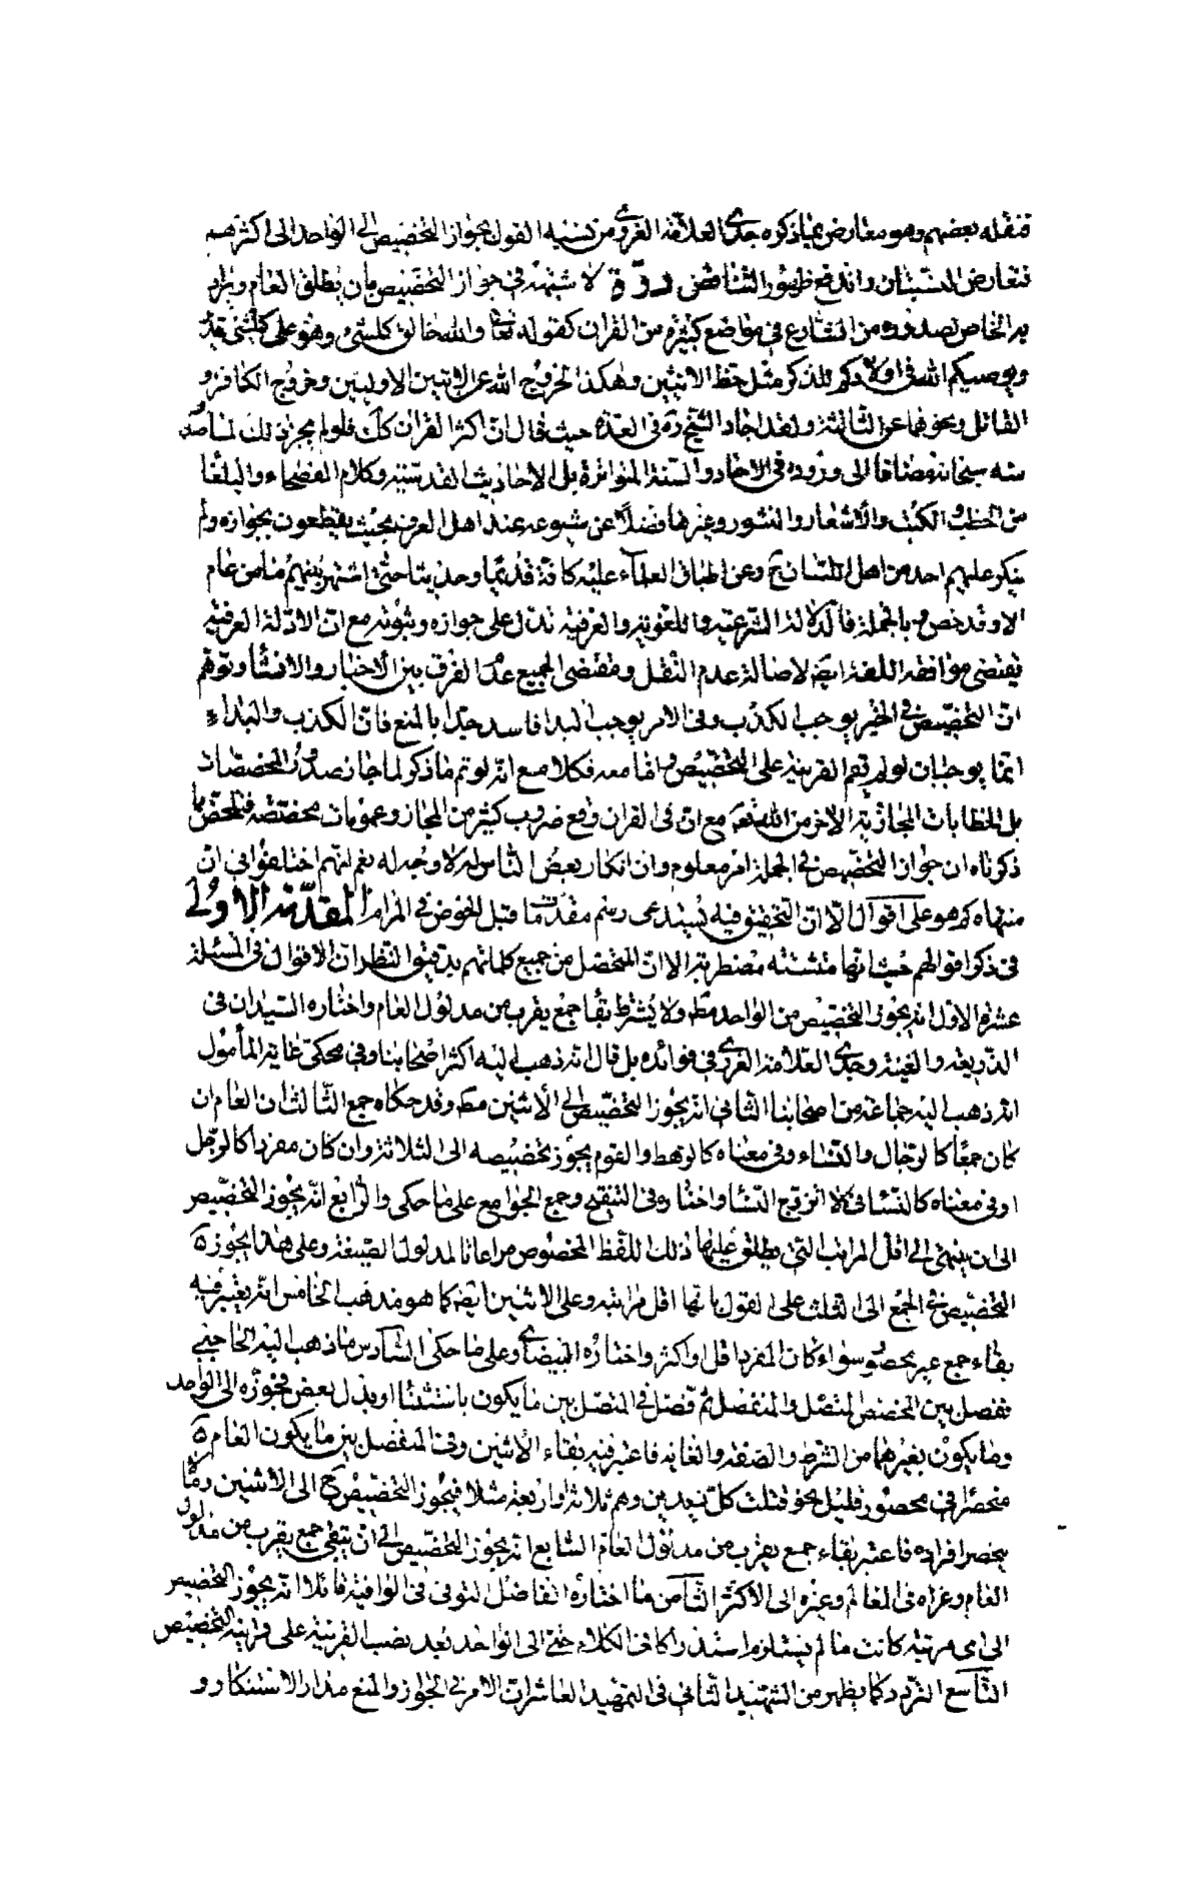 فنقله بعضهم وهو معارض بما ذكره جدّى العلامة الغروى من نسبة القول بجواز التخصيص الى الواحد الى اكثرهم
فتعارض النسبتان واندفع ظهور التناقض لا شبهة فى جواز التخصيص بان يطلق العام ويراد
به الخاص لصدوره من الشارع فى مواضع كثيرة من القران كقوله تعا والله خالق كلشئ وهو على كلشئ قدير
ويوصيكم الله فى اولادكم للذكر مثل حظ الانثيين وهكذا لخروج الله عن الايتين الاوليين وخروج الكافر و
القاتل ونحوهما عن الثالثة ولقد اجاد الشيخ ره فى العدة حيث قال ان اكثر القران كك فلو لم يجز ذلك لما صدر
منه سبحانه مضافا الى وروده فى الاخبار والسنة المتواترة بل الاحاديث القدسية وكلام الفصحاء والبلغا
من الخطب والكتب والاشعار والنشور وغيرها فضلا عن شيوعه عند اهل العرف بحيث يقطعون بجوازه ولم
ينكر عليهم احد من اهل اللسان وعن اطباق العلماء عليه كافة قديما وحديثا حتى اشتهر بينهم ما من عام
الا وقد خص وبالجملة فالادلة الشرعية واللغوية والعرفية تدل على جوازه وثبوته مع ان الادلة العرفية
يقتضى موافقة اللغة ايضا لاصالة عدم النقل ومقتضى الجميع عدم الفرق بين الاخبار والانشاء وتوهم
ان التخصيص فى الخبر يوجب الكذب وفى الامر يوجب البدا فاسد جدا بالمنع فان الكذب والبداء
انما يوجبان لو لم تقم القرينة على التخصيص واما معه فكلا مع انه لو تم ما ذكر لما جاز صدور المخصصات
بل الخطابات المجازية الاخر من الله تعه مع ان فى القران وقع ضروب كثيرة من المجاز وعمومات مخصصة فتلخص بما
ذكرناه ان جواز التخصيص فى الجملة امر معلوم وان انكار بعض الناس له لا وجه له نعم انهم اختلفوا فى ان
منتهاه كم هو على اقوال الا ان التحقيق فيه يستدعى رسم مقدمات قبل الخوض فى المرام المقدّمة الاولى
فى ذكر اقوالهم حيث انها متشتته مضطربة الا ان المتحصل من جميع كلماتهم بتدقيق النظر ان الاقوال فى المسئلة
عشرة الاول انه يجوز التخصيص من الواحد مط ولا يشترط بقا جمع يقرب من مدلول العام واختاره السيدان فى
الذريعة والغنية وجدى العلامة الغروى فى فوائده بل قال انه ذهب اليه اكثر اصحابنا وفى محكى غاية المأمول
انه ذهب اليه جماعة من اصحابنا الثانى انه يجوز التخصيص الى الاثنين مط وقد حكاه جمع الثالث ان العام ان
كان جمعا كالرجال والنساء وفى معناه كالرهط والقوم يجوز تخصيصه الى الثلاثة وان كان مفردا كالرجل
او فى معناه كالنساء فى لا اتزوج النسا واختاره فى التنقيح وجمع الجوامع على ما حكى والرابع انه يجوز التخصيص
الى ان ينتهى الى اقل المراتب التى يطلق عليها ذلك اللفظ المخصوص مراعاتا لمدلول الصيغة وعلى هذا يجوز
التخصيص فى الجمع الى الثلث على القول بانها اقل مراتبه وعلى الاثنين ايضا كما هو مذهب الخامس انه يعتبر فيه
بقاء جمع غير محصور سواء كان المفرد اقل او اكثر واختاره البيضاوى على ما حكى السادس ما ذهب اليه الحاجبى
ففصل بين المخصص المتصل والمنفصل ثم فصل فى المتصل بين ما يكون باستثناء او بدل بعض فجوزه الى الواحد
وما يكون بغيرهما من الشرط والصفة والغاية فاعتبر فيه بقاء الاثنين وفى المنفصل بين ما يكون العام
منحصرا فى محصور قليل نحو قتلت كل زنديق وهم ثلاثة او اربعة مثلا فيجوز التخصيص ح الى الاثنين وما لم
ينحصر افراده فاعتبر بقاء جمع يقرب من مدلول العام السابع انه يجوز التخصيص الى ان يبقى جمع يقرب من مدلول
العام وعزاه فى المعالم وغيره الى الاكثر الثامن ما اختاره الفاضل التونى فى الوافية قائلا انه يجوز التخصيص
الى اى مرتبة كانت ما لم يستلزم استنكارا فى الكلام حتى الى الواحد بعد نصب القرينة على قرينة التخصيص
التاسع التردد كما يظهر من الشهيد الثانى فى التمهيد العاشر ان الامر فى الجواز والمنع مدار الاستنكار و